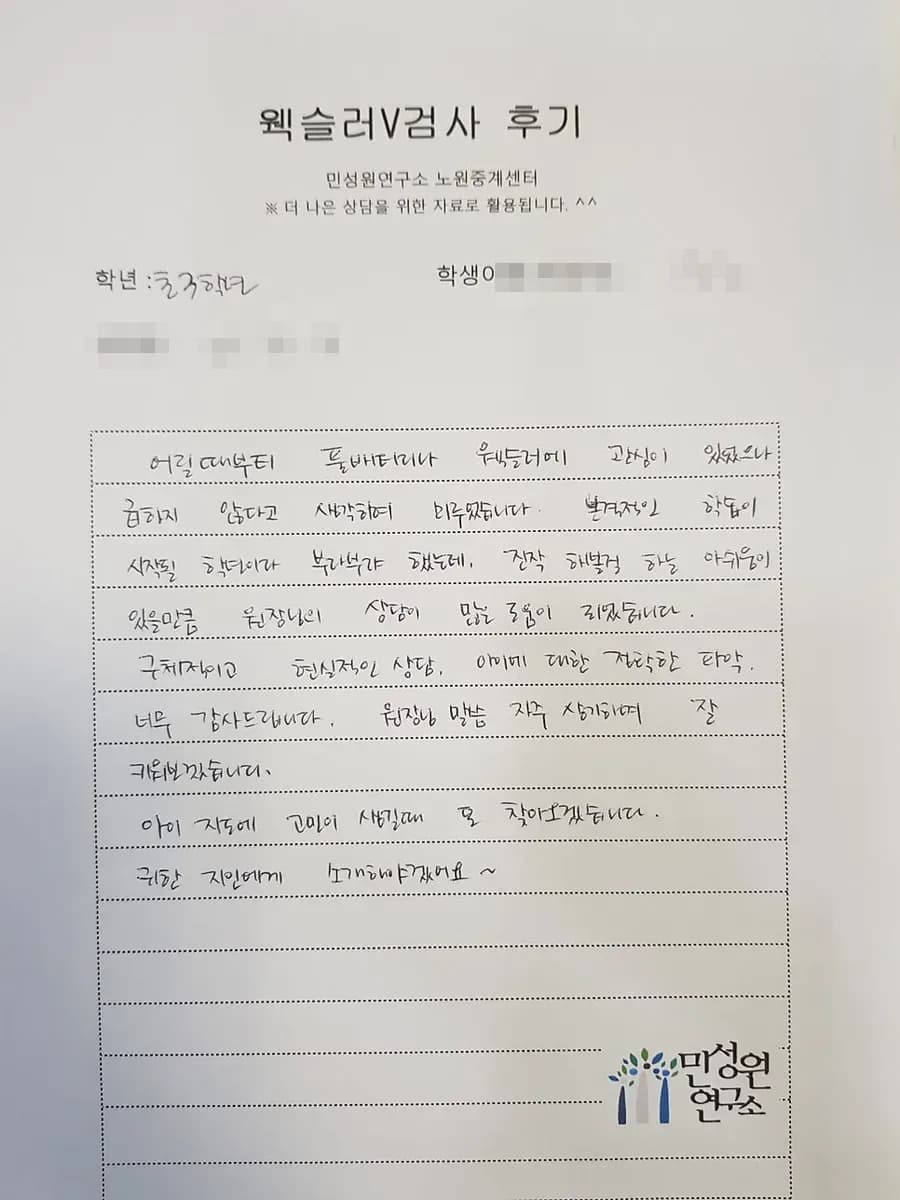 웩슬러V검사 후기
민성원연구소 노원중계센터
※ 더 나은 상담을 위한 자료로 활용됩니다. ^^
학년 : 초3학년 학생이
어릴때부터 풀배터리나 웩슬러에 관심이 있었으나
급하지 않다고 생각하여 미루었습니다. 본격적인 학습이
시작될 학년이라 부랴부랴 했는데, 진작 해볼걸 하는 아쉬움이
있을만큼 원장님의 상담이 많은 도움이 되었습니다.
구체적이고 현실적인 상담, 아이에 대한 정확한 파악.
너무 감사드립니다. 원장님 말씀 자주 상기하여 잘
키워보겠습니다.
아이 지도에 고민이 생길때 또 찾아오겠습니다.
귀한 지인에게 소개해야겠어요~
민성원
연구소